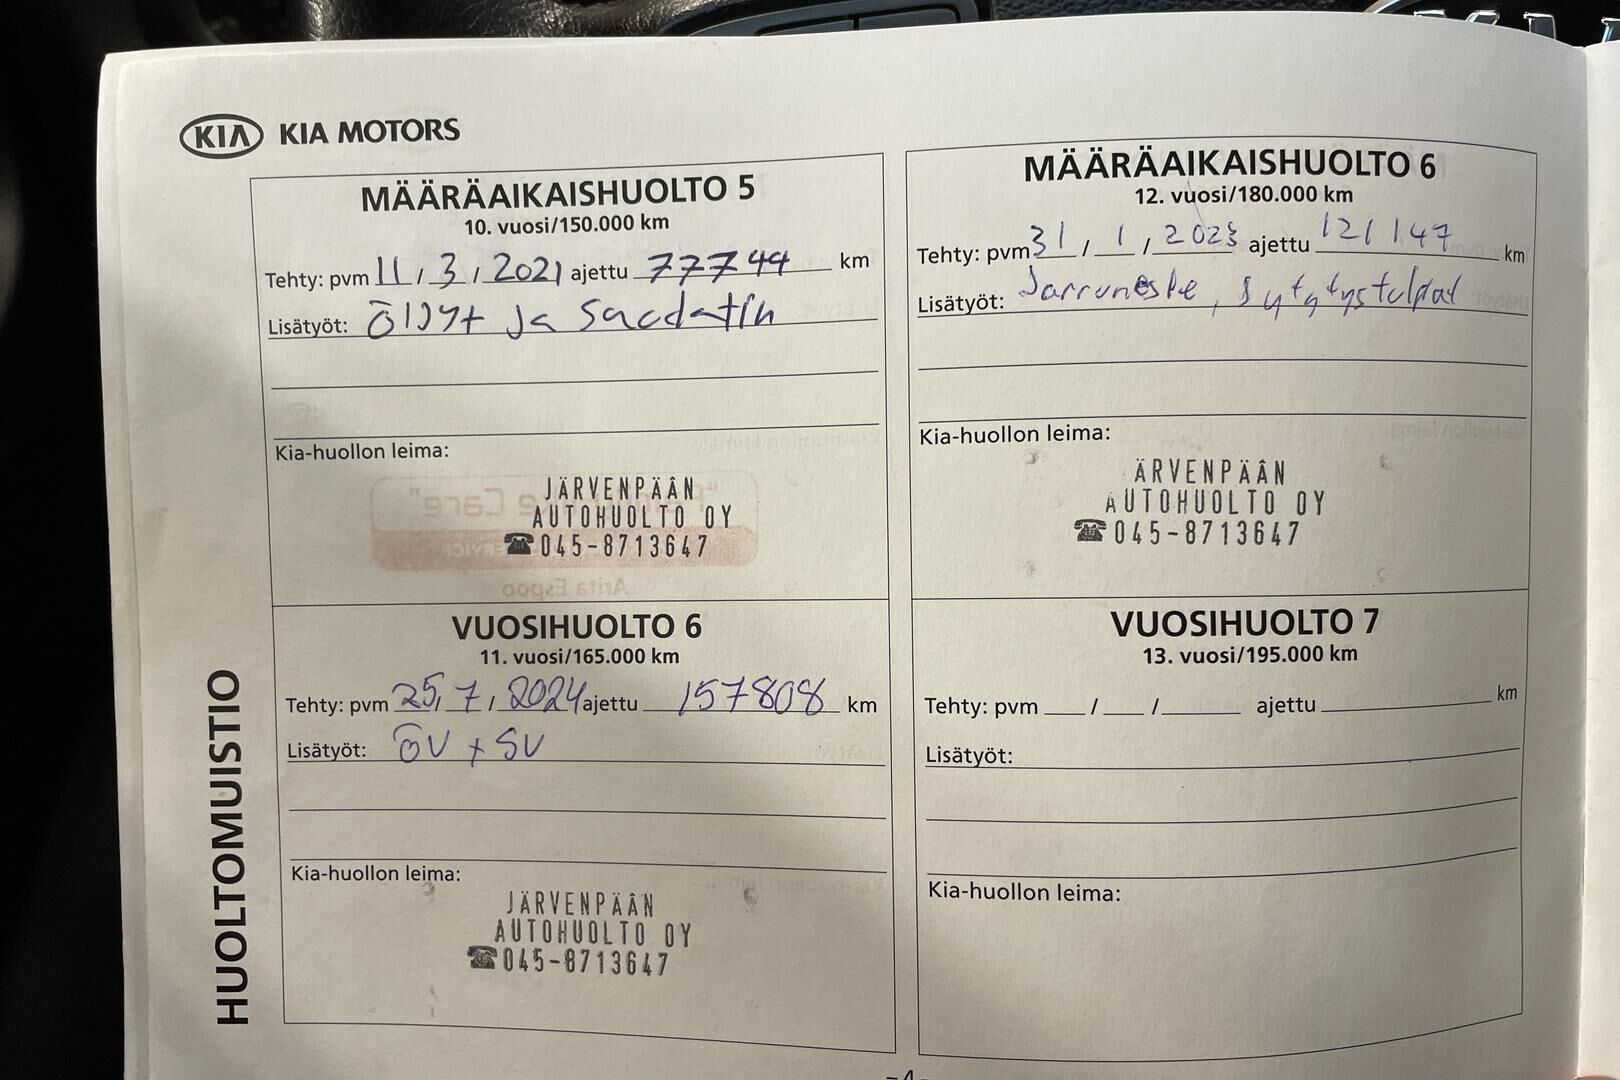 KIA KIA MOTORS
MÄÄRÄAIKAISHUOLTO 5
10. vuosi/150.000 km
Tehty: pvm 11 / 3 / 2021 ajettu 77744 km
Lisätyöt: Öljyt ja Suodatin
Kia-huollon leima:
JÄRVENPÄÄN
AUTOHUOLTO OY
☎045-8713647
MÄÄRÄAIKAISHUOLTO 6
12. vuosi/180.000 km
Tehty: pvm 31 / 1 / 2023 ajettu 121147 km
Lisätyöt: Jarruneste, Sytytystulpat
Kia-huollon leima:
ÄRVENPÄÄN
AUTOHUOLTO OY
☎045-8713647
VUOSIHUOLTO 6
11. vuosi/165.000 km
Tehty: pvm 25 / 7 / 2024 ajettu 157808 km
Lisätyöt: ÖV + SV
Kia-huollon leima:
JÄRVENPÄÄN
AUTOHUOLTO OY
☎045-8713647
VUOSIHUOLTO 7
13. vuosi/195.000 km
Tehty: pvm ___ / ___ / ______ ajettu ______ km
Lisätyöt:
Kia-huollon leima:
HUOLTOMUISTIO